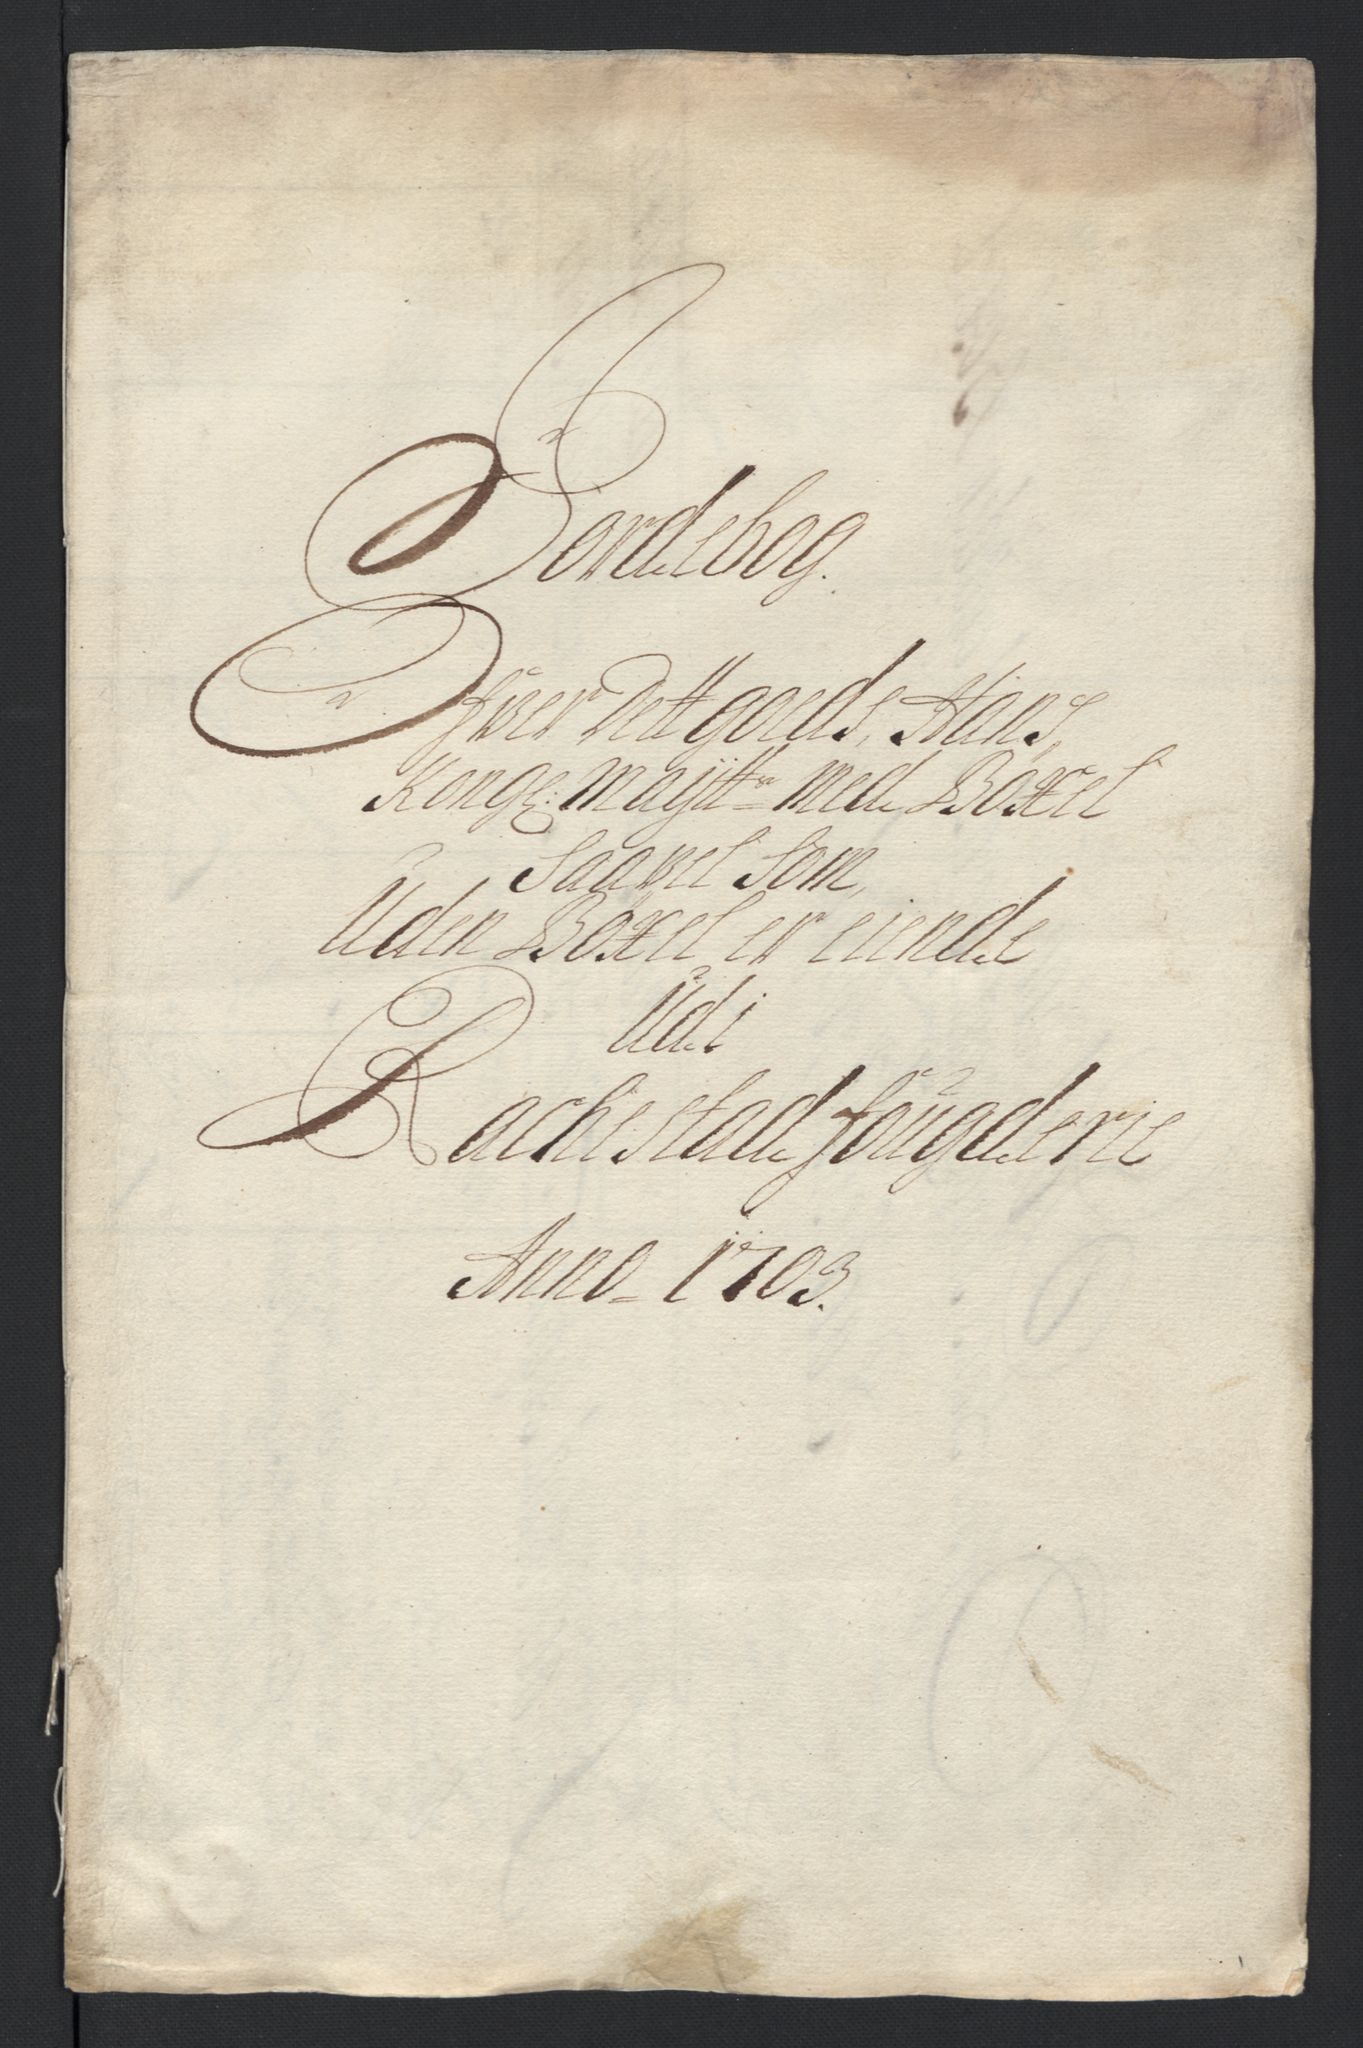 Jordebog.
Ofver Dett goeds, Hans,
Konge: Maÿtt: med Böxel
Saavel Som,
Uden Böxel er eiende
Udi
Rachestad fougderie
Anno 1703.